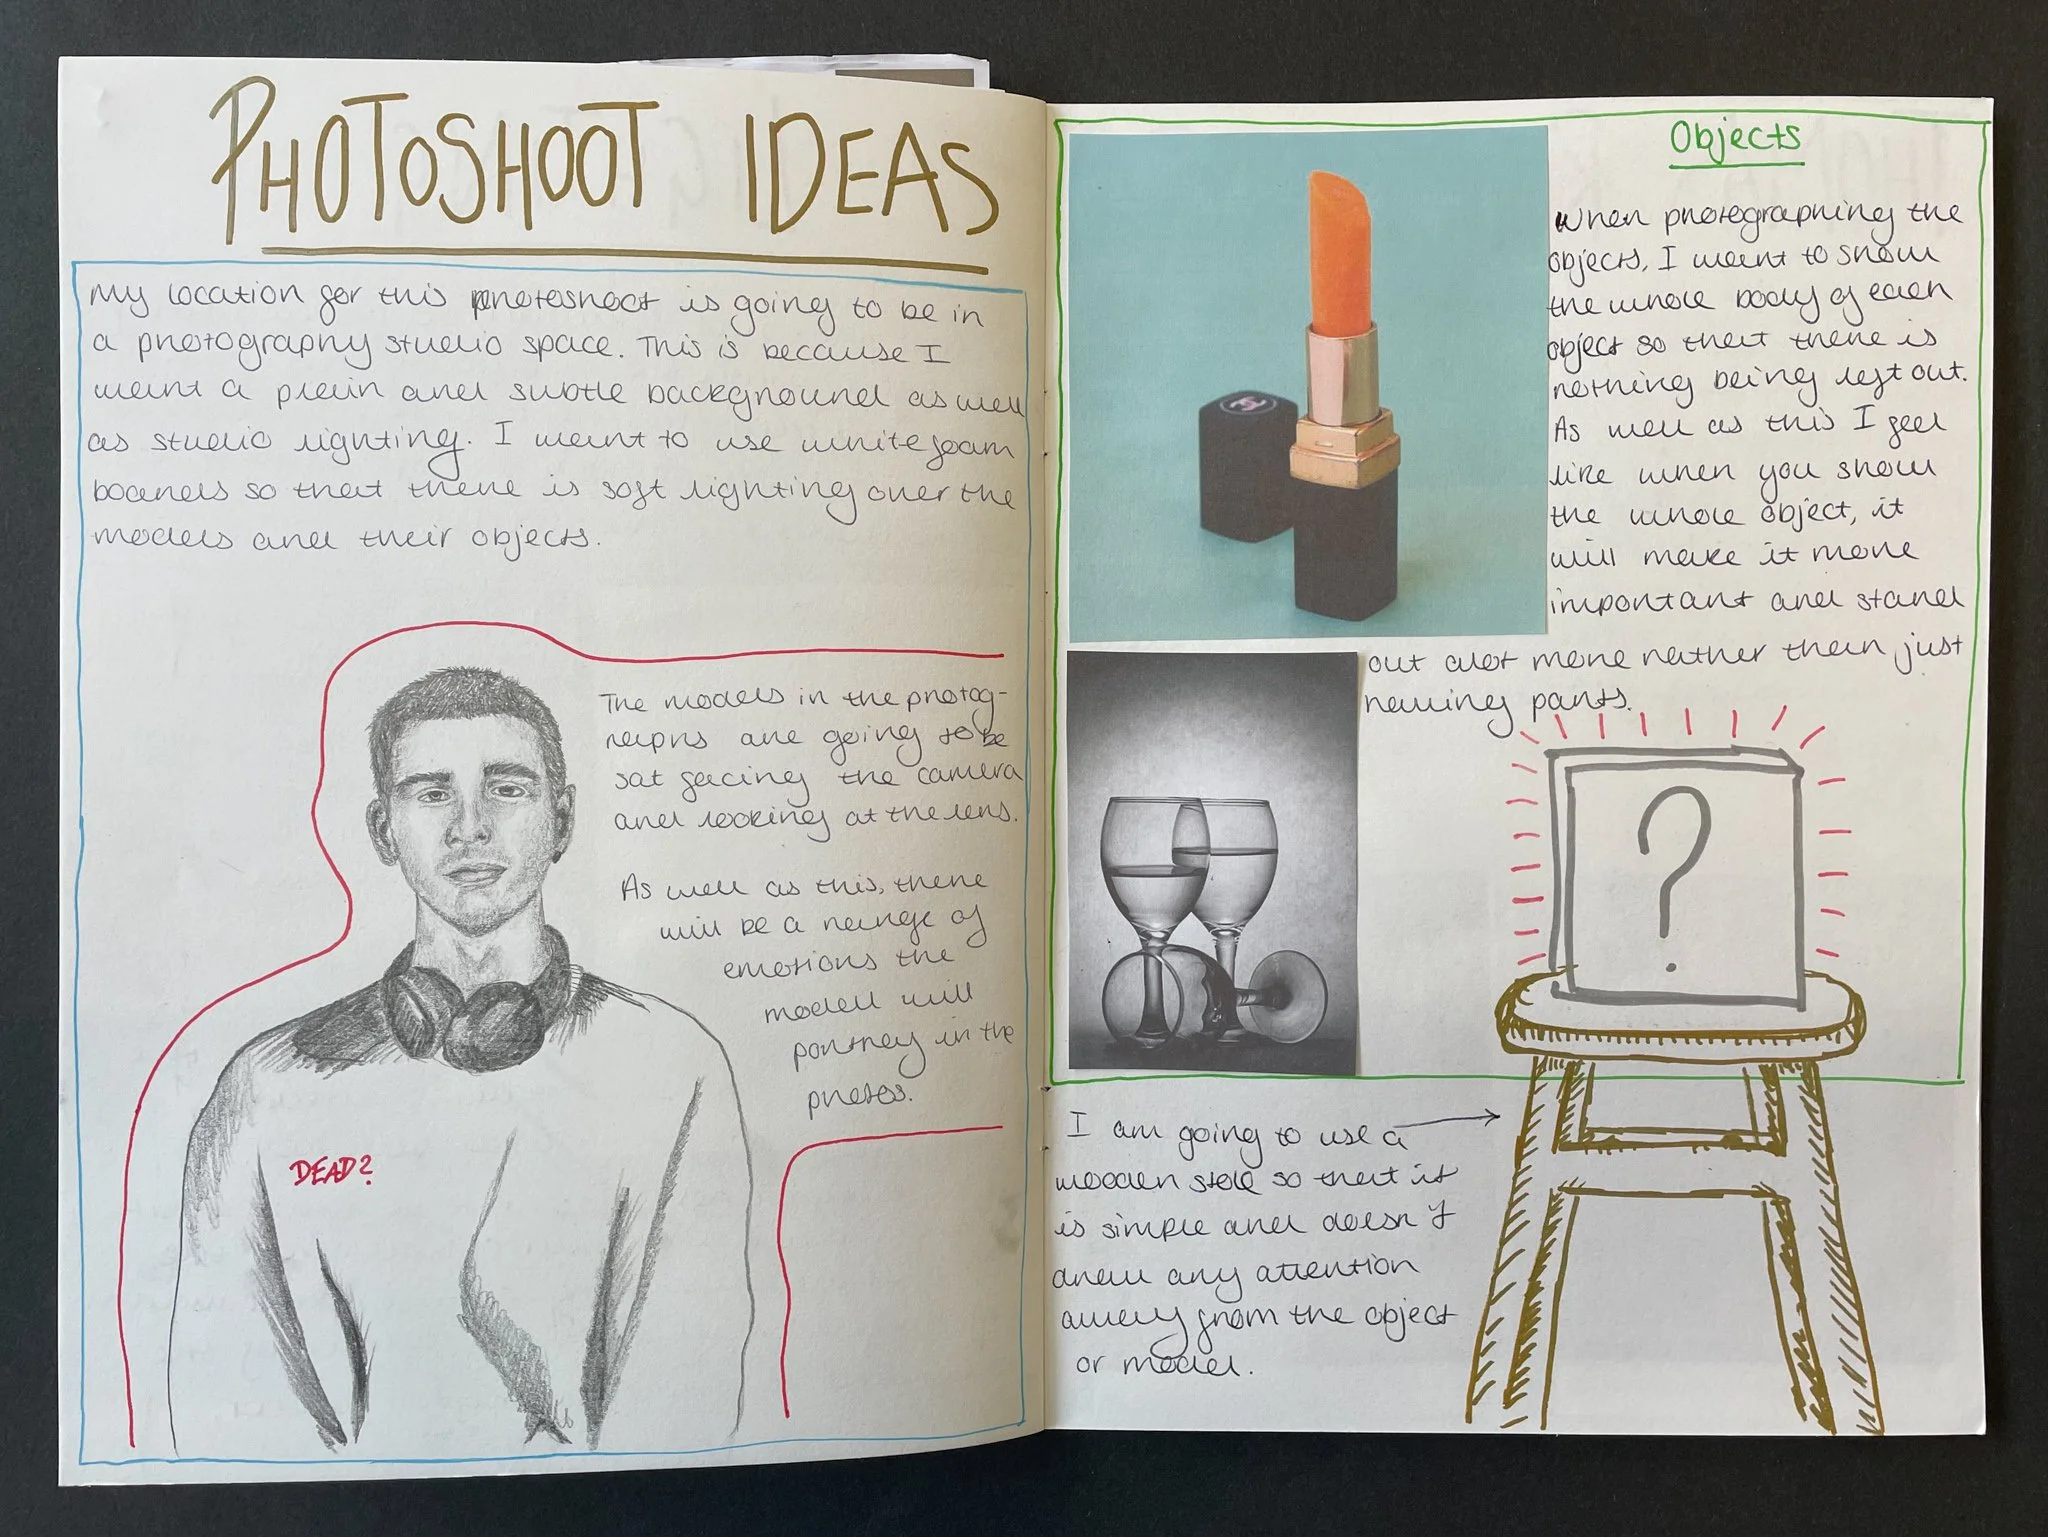 PHOTOSHOOT IDEAS
My location for this photoshoot is going to be in
a photography studio space. This is because I
want a plain and subtle background as well
as studio lighting. I want to use white foam
boards so that there is soft lighting over the
models and their objects.
The models in the photog-
raphs are going to be
sat facing the camera
and looking at the lens.
As well as this, there
will be a range of
emotions the
modell will
portray in the
photos.
DEAD?
Objects
When photographing the
objects, I want to show
the whole body of each
object so that there is
nothing being left out.
As well as this I feel
like when you show
the whole object, it
will make it more
important and stand
out alot more rather than just
rawing parts.
?
I am going to use a
wooden stole so that it
is simple and doesn't
draw any attention
away from the object
or model.